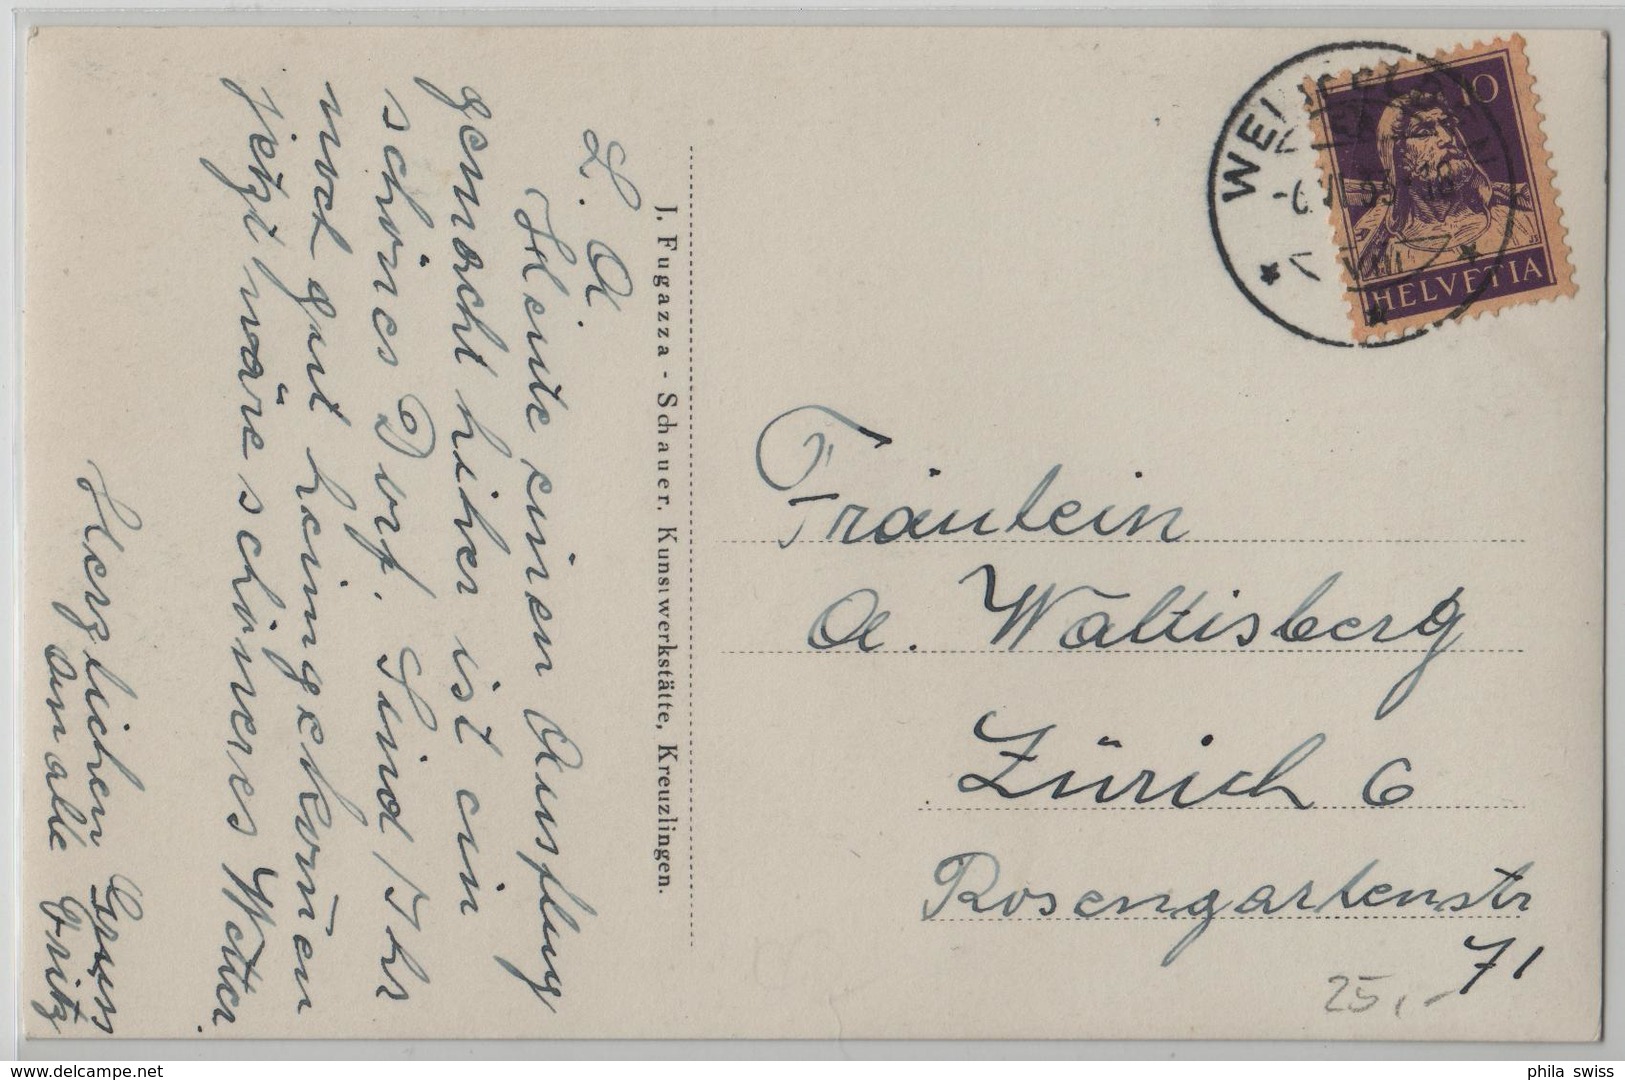 L. A.
Heute einen Ausflug
gemacht hiher ist ein
schönes Dorf. Sind Ihr
noch gut heimgekomen
jetzt wäre schöneres Wetter.
Herzlichen Gruss
Fritz
J. Fugazza - Schauer, Kunstwerkstätte, Kreuzlingen.
10
HELVETIA
Fräulein
A. Waltisberg
Zürich 6
Rosengartenstr
71
25.-
phila swiss